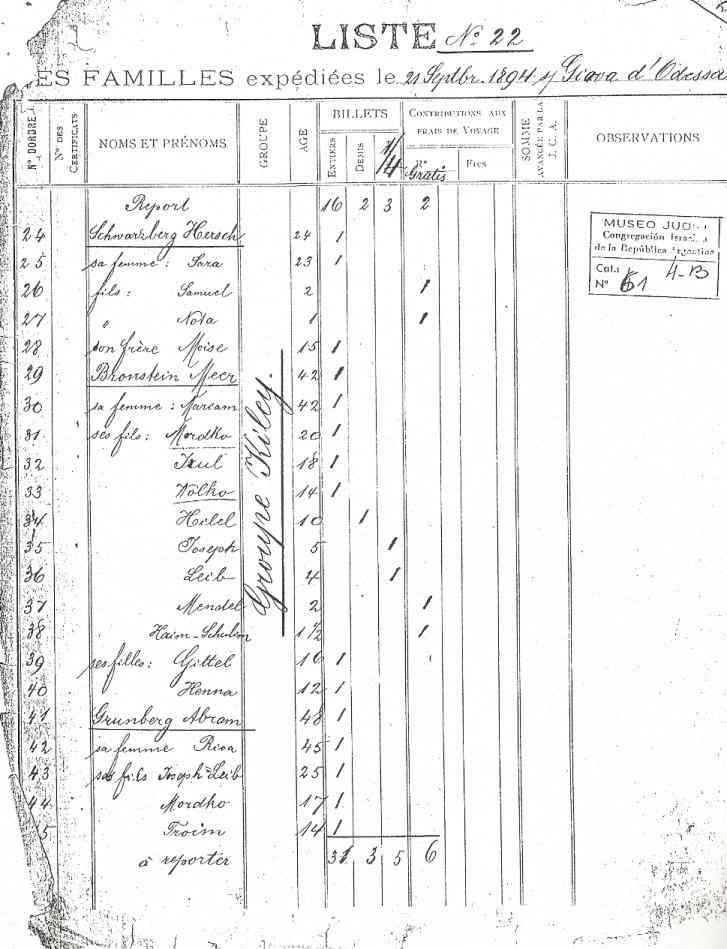 LISTE No. 22
ES FAMILLES expédiées le 21 Septbr. 1894 y Giava d'Odessa
Nº D'ORDRE Nº DES CERTIFICATS NOMS ET PRÉNOMS GROUPE AGE BILLETS ENTIERS DEMIS 1/4 CONTRIBUTIONS AUX FRAIS DE VOYAGE Gratis Frcs SOMME AVANCÉE PAR LA J. C. A. OBSERVATIONS
Report 16 2 3 2
24 Schwarzberg Hersch 24 1
25 sa femme : Sara 23 1
26 fils : Samuel 2 1
27 " Nota 1 1
28 son frère Moise 15 1
29 Bronstein Meer 42 1
30 sa femme : Mariam 42 1
31 ses fils : Mordko 20 1
32 Izul 18 1
33 Wolko 14 1
34 Hilel 10 1
35 Joseph 5 1
36 Leib 4 1
37 Mendel 2 1
38 Haim-Schulim 1 1/2 1
39 ses filles : Gittel 16 1
40 Henna 12 1
41 Grunberg Abram 48 1
42 sa femme Riva 45 1
43 ses fils Joseph-Leib 25 1
44 Mordko 17 1
5 Froim 14 1
à reporter 31 3 5 6
Groupe Kiley.
MUSEO JUD
Congregación Israel
de la República Argentina
Cat. 4-B
Nº 61